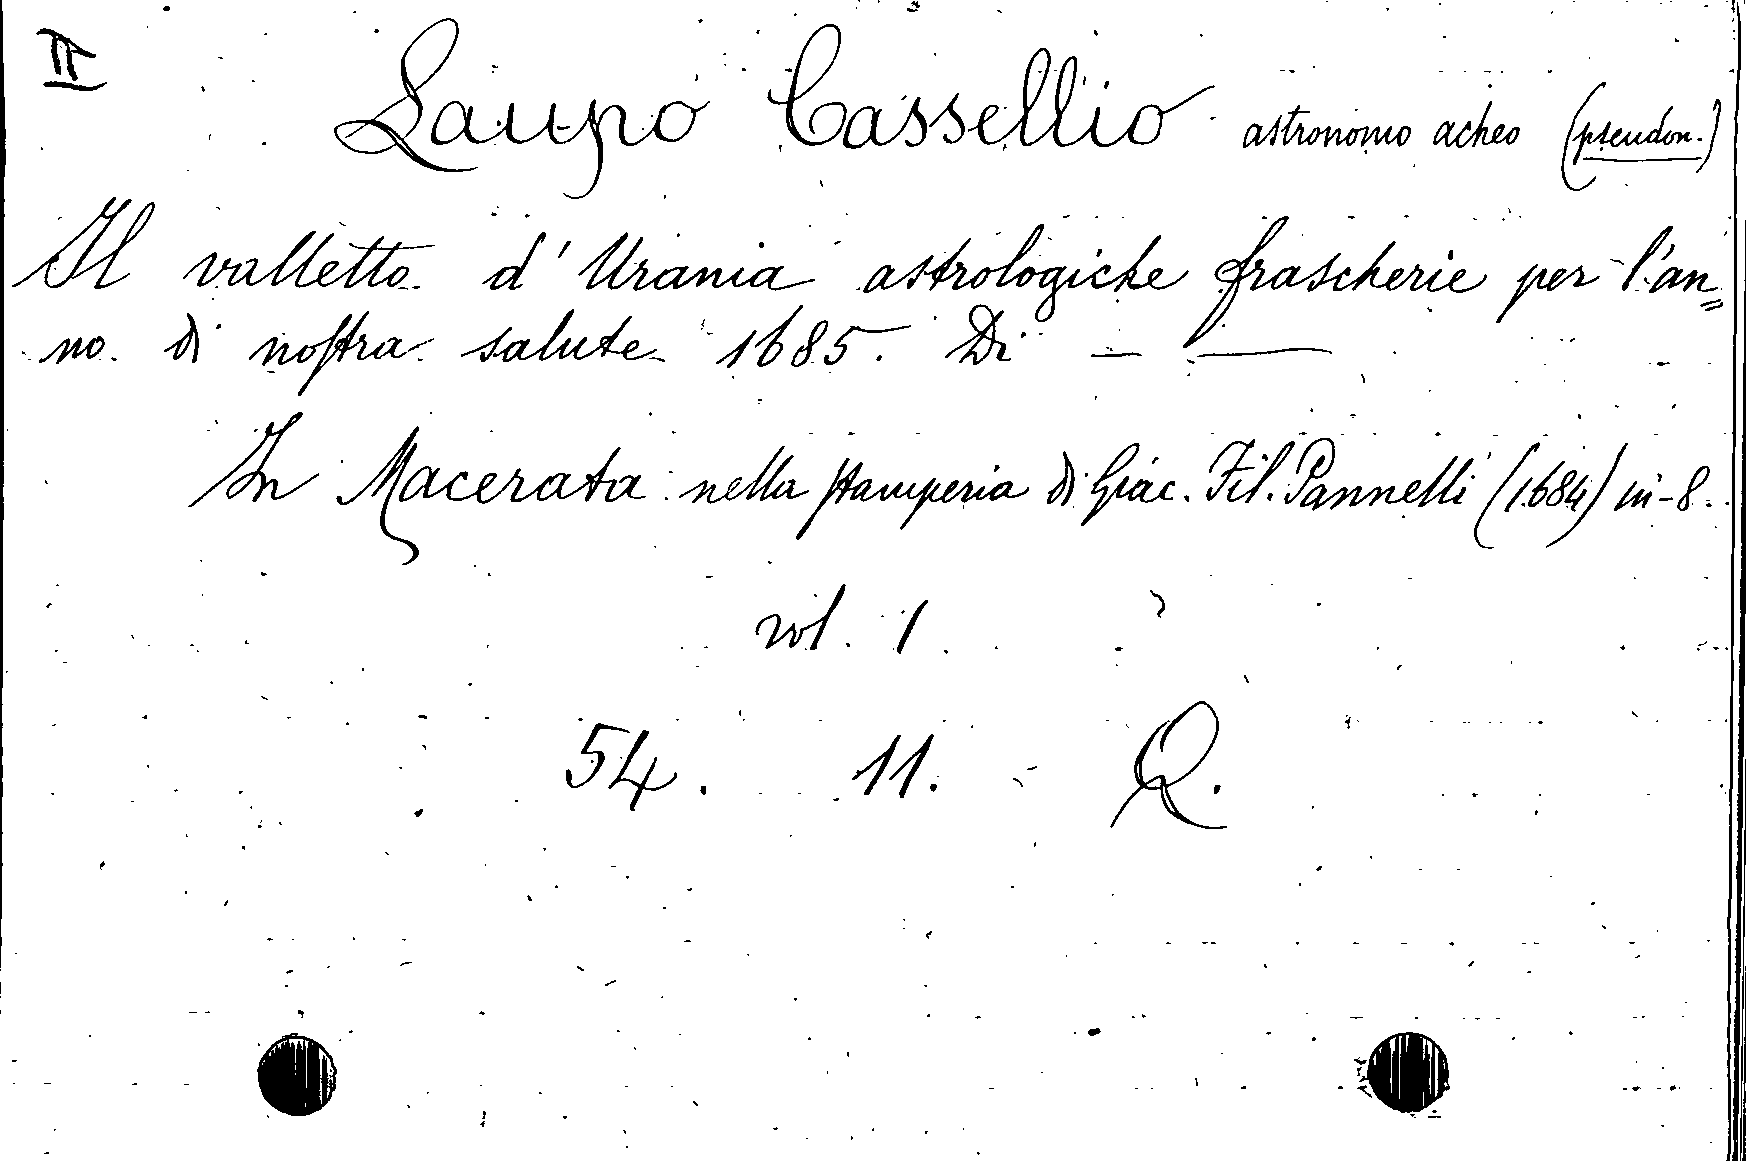 II
Laupo Cassellio astronomo acheo (pseudon.)
Il valletto d'Urania astrologiche frascherie per l'an=
no di nostra salute 1685. Di — —
In Macerata nella stamperia di Giac. Fil. Pannelli (1684) in-8.
vol. 1
54. 11. Q.